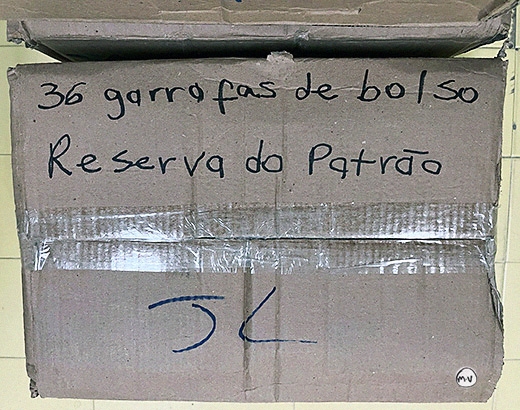 36 garrafas de bolso
Reserva do Patrão
JL
MV